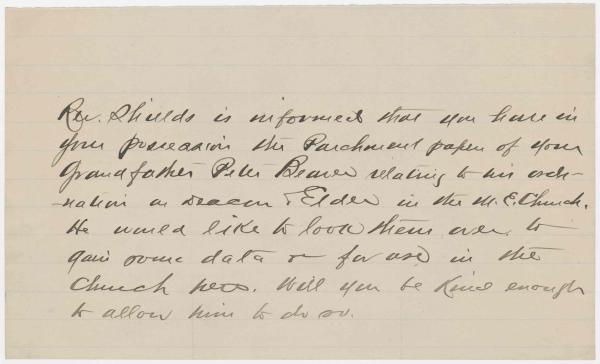 Rev. Shields is informed that you have in
your possession the Parchment paper of your
Grandfather Peter Beaver relating to his ordi-
-nation as deacon & Elder in the M. E. Church.
He would like to look them over to
gain some data or for use in the
Church here. Will you be kind enough
to allow him to do so.